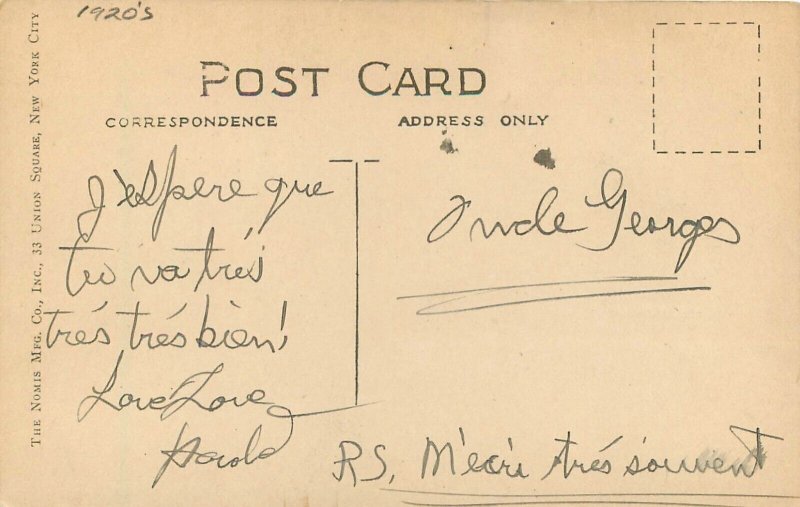 1920's
POST CARD
CORRESPONDENCE
ADDRESS ONLY
J'espere que
tu va trés
trés trés bien!
Love Love
Harold
Oncle Georges
P.S. M'écri trés souvent
THE NOMIS MFG. CO., INC., 33 UNION SQUARE, NEW YORK CITY